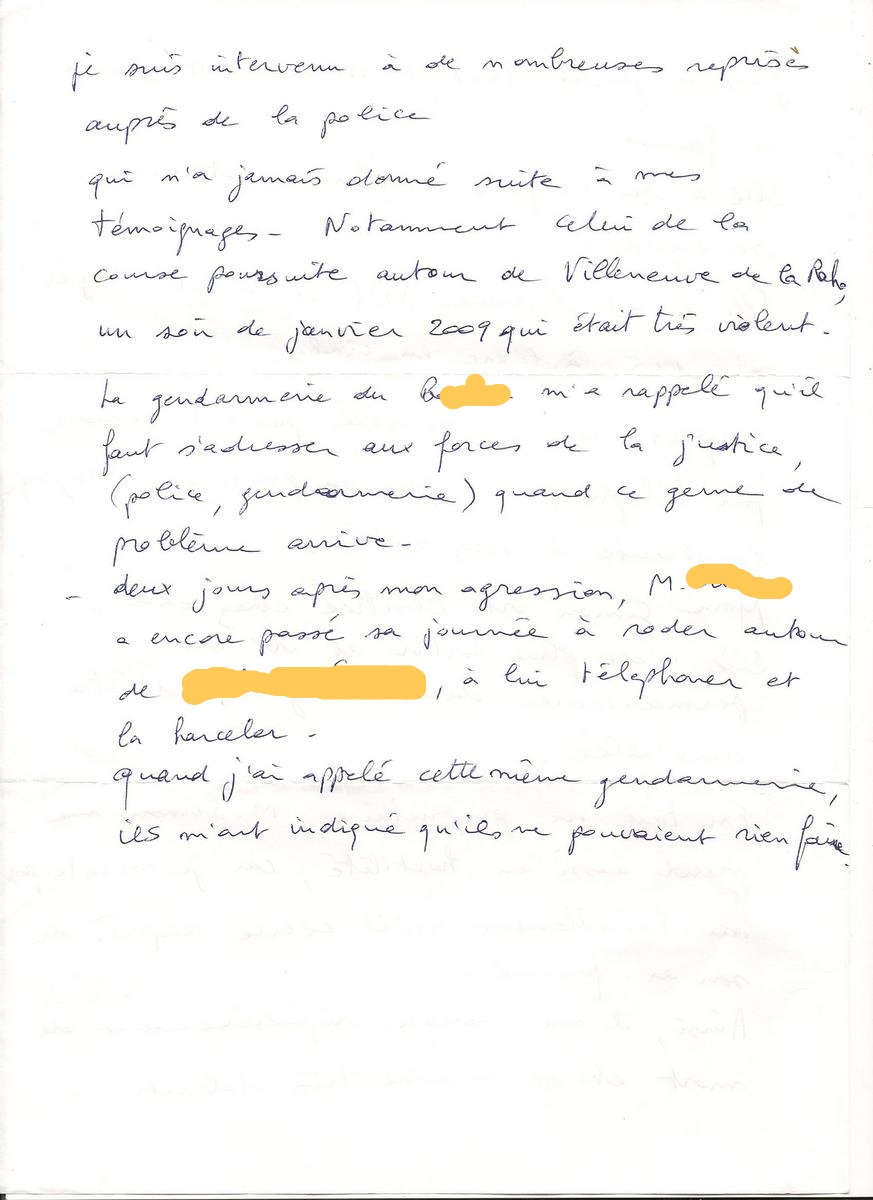 je suis intervenu à de nombreuses reprises
auprès de la police
qui n'a jamais donné suite à mes
témoignages - Notamment celui de la
course poursuite autour de Villeneuve de la Raho,
un soir de janvier 2009 qui était très violent.
La gendarmerie du m'a rappelé qu'il
faut s'adresser aux forces de la justice,
(police, gendarmerie) quand ce genre de
problème arrive -
- deux jours après mon agression, M.
a encore passé sa journée à roder autour
de , à lui téléphoner et
la harceler -
quand j'ai appelé cette même gendarmerie,
ils m'ont indiqué qu'ils ne pouvaient rien faire.